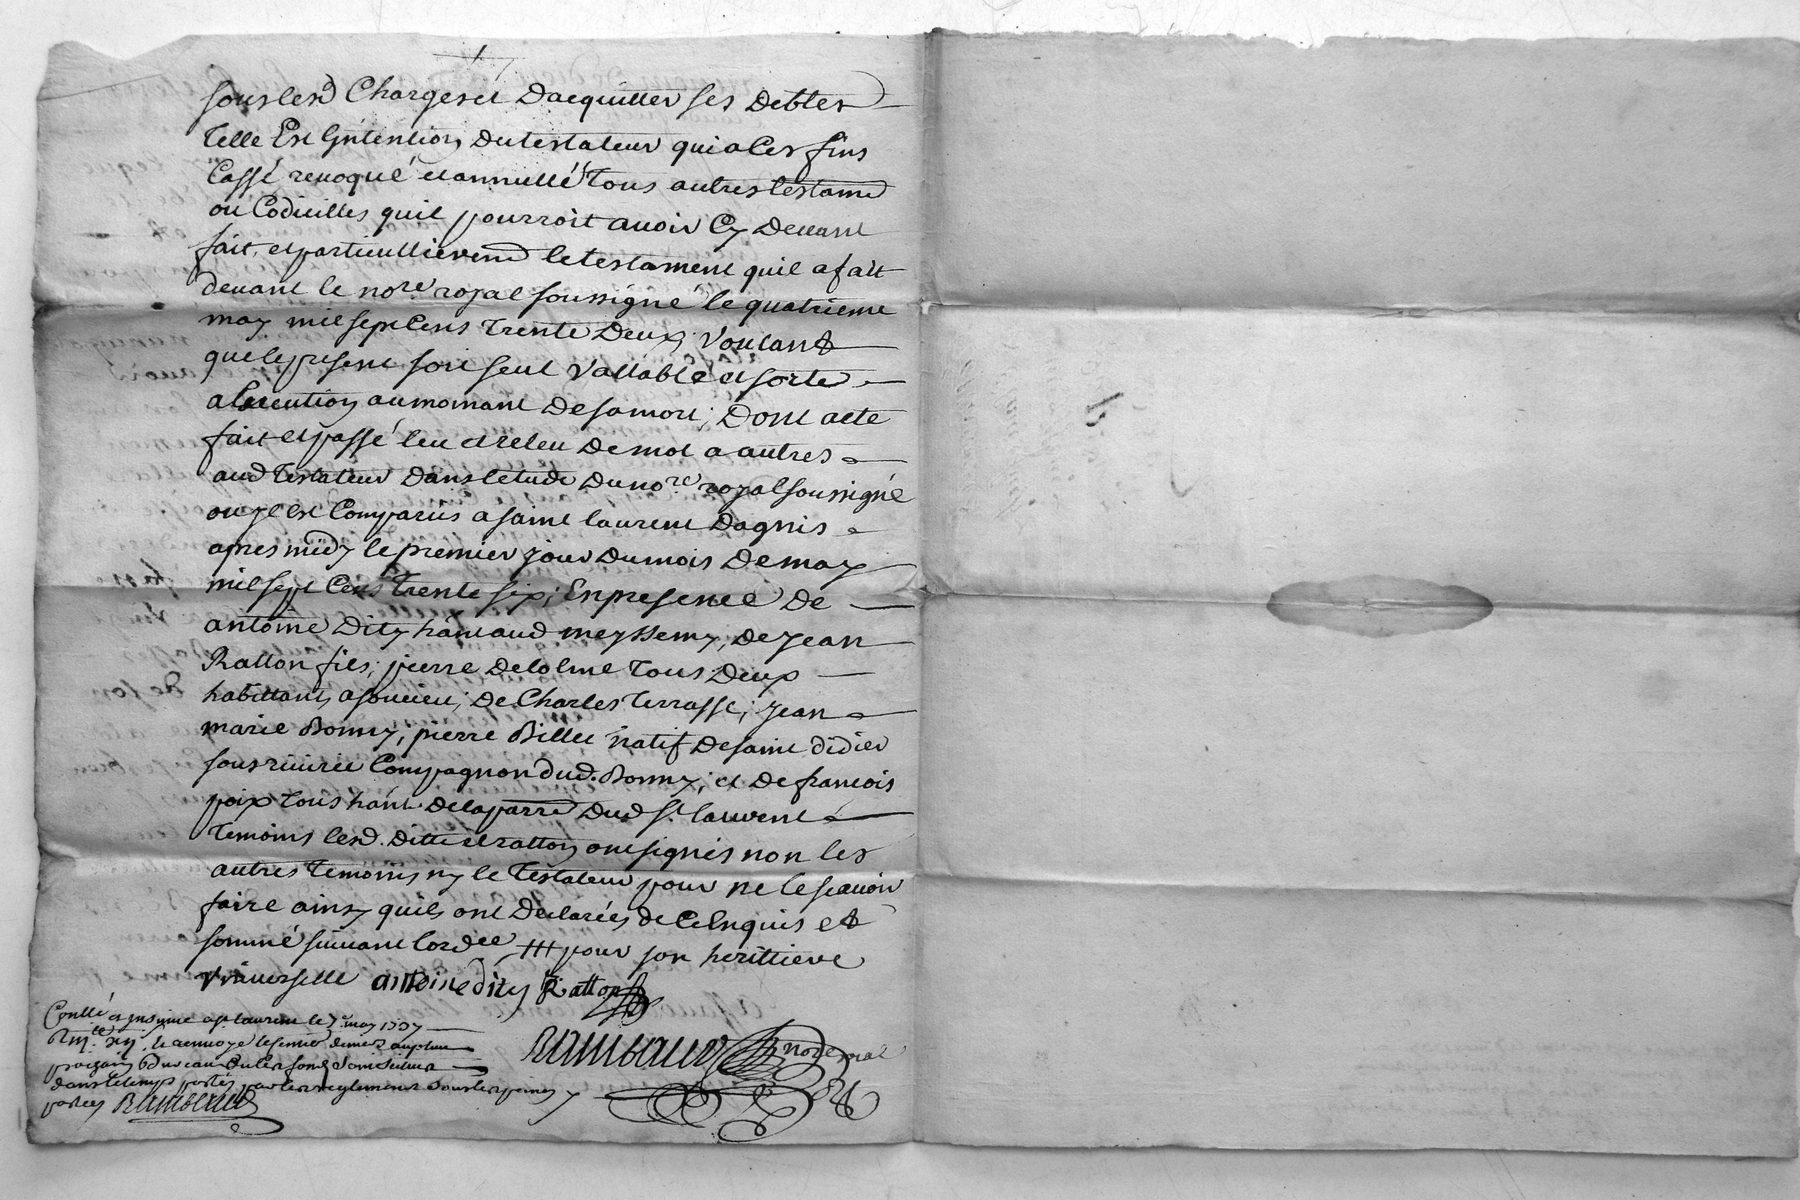 sous lesd Charges et Dacquitter ses Debtes
Telle Est Lintention Du testateur qui a Ces fins
Cassé revoqué et annullé Tous autres testamd
ou Codicilles quil pourroit auoir Cy Deuant
fait, et particullieremd le testament quil a fait
deuant le nore royal soussigné le quatrieme
may mil sept Cens Trente Deux; Voulant
que le present soit seul Vallable et sorte
a Execution au momant De sa mort; Dont acte
fait et passé leu et releu De mot a autres
aud Testateur Dans letude Du nore royal soussigné
ou yl est Comparus a saint laurent Dagnis
apres midy le premier jour Du mois De may
mil sept Cens Trente six; En presence De
antoine Dity habitand meyssemy, de Jean
Ratton fils, pierre Delolme Tous Deux
habittants a soucieu; De Charles Terrasse; Jean
marie Bonny; pierre Billet natif De saint didier
sous riuirie Compagnon dud. Bonny; et De francois
poix Tous habit. De la parre Dud St. laurent
Temoins lesd. Ditti et ratton ont signés non les
autres Temoins ny le Testateur pour ne le scauoir
faire ainsy quils ont Declarées de Ce Enquis et
sommé suiuant lordce +++ pour son herittiere
Vniuerselle antoine dity Ratton
Conllé et insinué a st laurent le 7e may 1737
le renuoye le
au bureau
dans le temps portés par les reglements sous les peines y
portées Rambaud
Rambaud nore royal